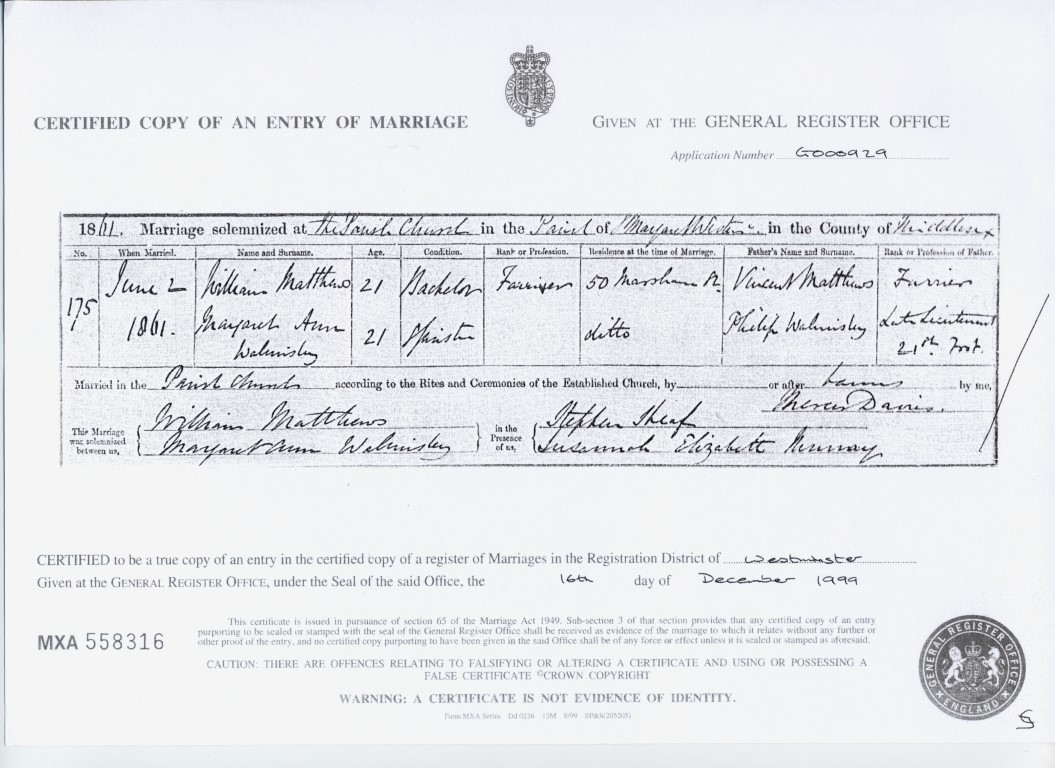 CERTIFIED COPY OF AN ENTRY OF MARRIAGE
GIVEN AT THE GENERAL REGISTER OFFICE
Application Number G000929
1861. Marriage solemnized at the Parish Church in the Parish of St Margaret in the County of Middlesex
No. When Married. Name and Surname. Age. Condition. Rank or Profession. Residence at the time of Marriage. Father's Name and Surname. Rank or Profession of Father.
175 June 2 William Matthews 21 Bachelor Farrier 50 Marsham St. Vincent Matthews Farrier
1861. Margaret Ann Walmisley 21 Spinster ditto Philip Walmisley Late Lieutenant 21st Foot.
Married in the Parish Church according to the Rites and Ceremonies of the Established Church, by or after banns by me,
Mercer Davies.
This Marriage was solemnized between us, William Matthews
Margaret Ann Walmisley
in the Presence of us, Stephen Sheaf
Susannah Elizabeth Murray
CERTIFIED to be a true copy of an entry in the certified copy of a register of Marriages in the Registration District of Westminster
Given at the GENERAL REGISTER OFFICE, under the Seal of the said Office, the 16th day of December 1999
MXA 558316
This certificate is issued in pursuance of section 65 of the Marriage Act 1949. Sub-section 3 of that section provides that any certified copy of an entry
purporting to be sealed or stamped with the seal of the General Register Office shall be received as evidence of the marriage to which it relates without any further or
other proof of the entry, and no certified copy purporting to have been given in the said Office shall be of any force or effect unless it is sealed or stamped as aforesaid.
CAUTION: THERE ARE OFFENCES RELATING TO FALSIFYING OR ALTERING A CERTIFICATE AND USING OR POSSESSING A
FALSE CERTIFICATE ©CROWN COPYRIGHT
WARNING: A CERTIFICATE IS NOT EVIDENCE OF IDENTITY.
Form MXA Series Dd 0236 13M 8/99 SP&S(205205)
GENERAL REGISTER OFFICE
ENGLAND